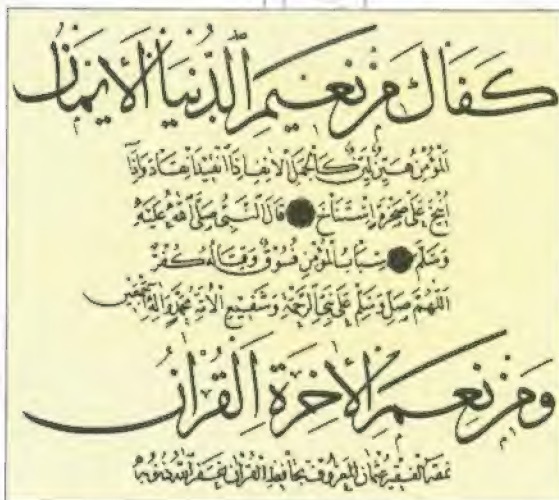 كفاك من نعيم الدنيا الايمان
المؤمن هين لين كالجمل الانف اذا انقيد انقاد واذا
انيخ على صخرة استناخ قال النبي صلى الله عليه
وسلم سباب المؤمن فسوق وقتاله كفر
اللهم صل وسلم على نبي الرحمة وشفيع الامة محمد واله اجمعين
ومن نعيم الاخرة القران
نمقه الفقير عثمان المعروف بحافظ القران غفر الله ذنوبه